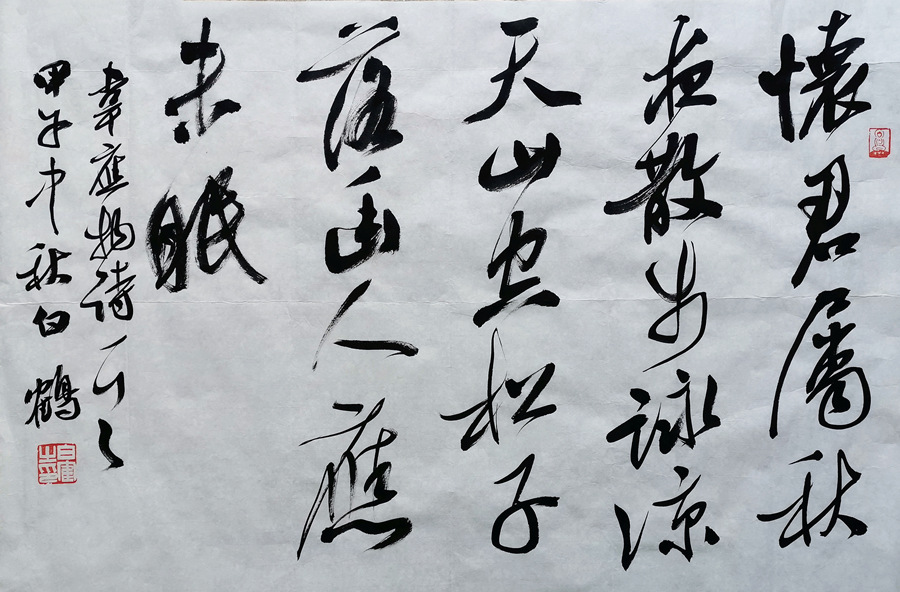 懷君屬秋
夜散步詠涼
天山空松子
落幽人應
未眠
韋應物詩一首
甲午中秋白鶴